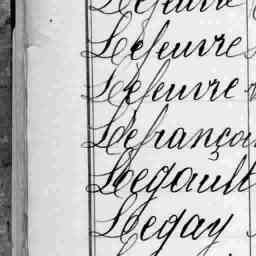 Lefeuvre
Lefeuvre
Lefeuvre
Lefrançoi
Legault
Legay